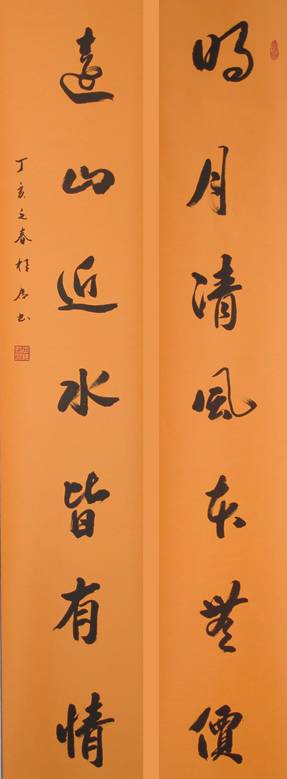 明月清風本無價
遠山近水皆有情
丁亥之春桂居書